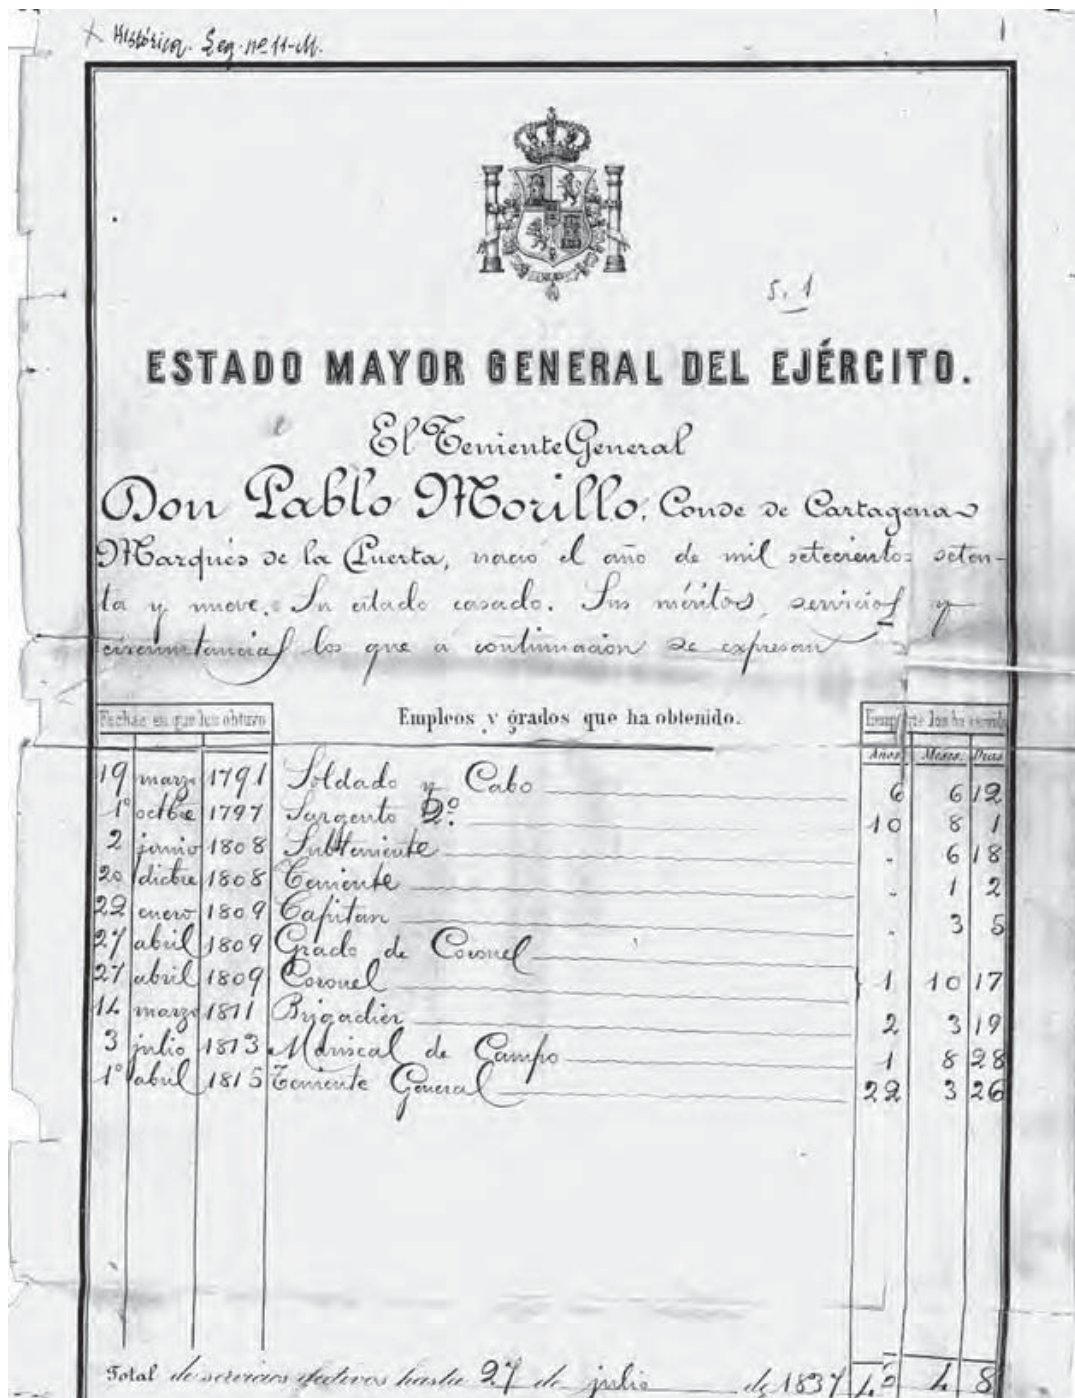 Histórica. Leg. nº 11-M.
5. 1
ESTADO MAYOR GENERAL DEL EJÉRCITO.
El Teniente General
Don Pablo Morillo, Conde de Cartagena
Marqués de la Puerta, nació el año de mil setecientos seten-
ta y nueve. Su estado casado. Sus méritos, servicios y
circunstancias los que a continuación se expresan
Fechas en que los obtuvo Empleos y grados que ha obtenido. los ha servido
Años Meses. Dias
19 marzo 1791 Soldado y Cabo 6 6 12
1º octbre 1797 Sargento 2º. 10 8 1
2 junio 1808 Subteniente . 6 18
20 dictre 1808 Teniente . 1 2
22 enero 1809 Capitan . 3 5
27 abril 1809 Grado de Coronel
27 abril 1809 Coronel 1 10 17
14 marzo 1811 Brigadier 2 3 19
3 julio 1813 Mariscal de Campo 1 8 28
1º abril 1815 Teniente General 22 3 26
Total de servicios efectivos hasta 27 de julio de 1837 4 8